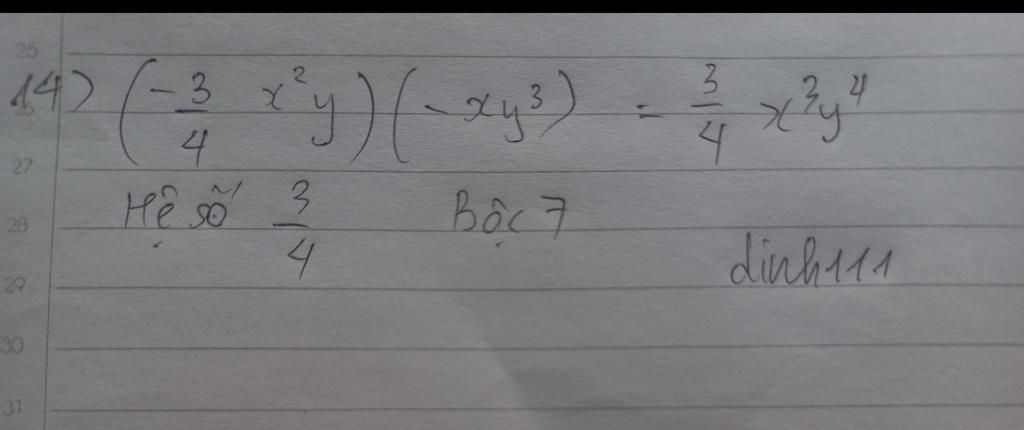 25
14) (-3/4 x²y)(-xy³) = 3/4 x³y⁴
26
27
Hệ số 3/4 Bậc 7
28
dinh111
29
30
31